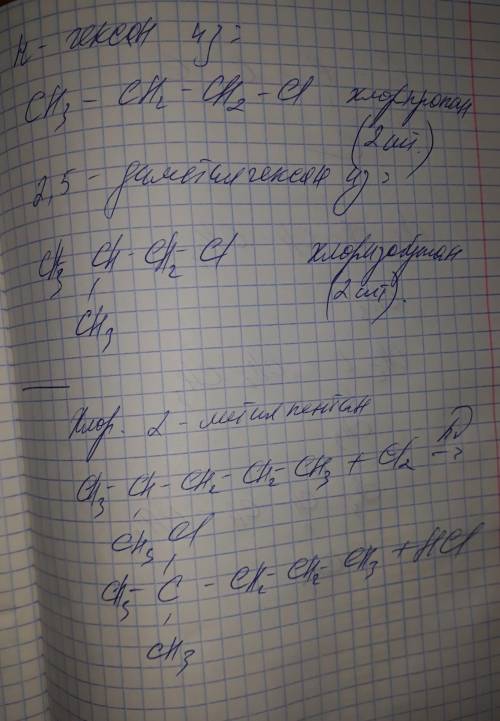 н - гексан из:
CH3 - CH2 - CH2 - Cl хлорпропан
(2 шт.)
2,5 - диметилгексан из:
CH3 - CH - CH2 - Cl хлоризобутан
(2 шт).
CH3
Хлор. 2 - метилпентан
CH3 - CH - CH2 - CH2 - CH3 + Cl2 hν →
CH3 Cl
CH3 - C - CH2 - CH2 - CH3 + HCl
CH3